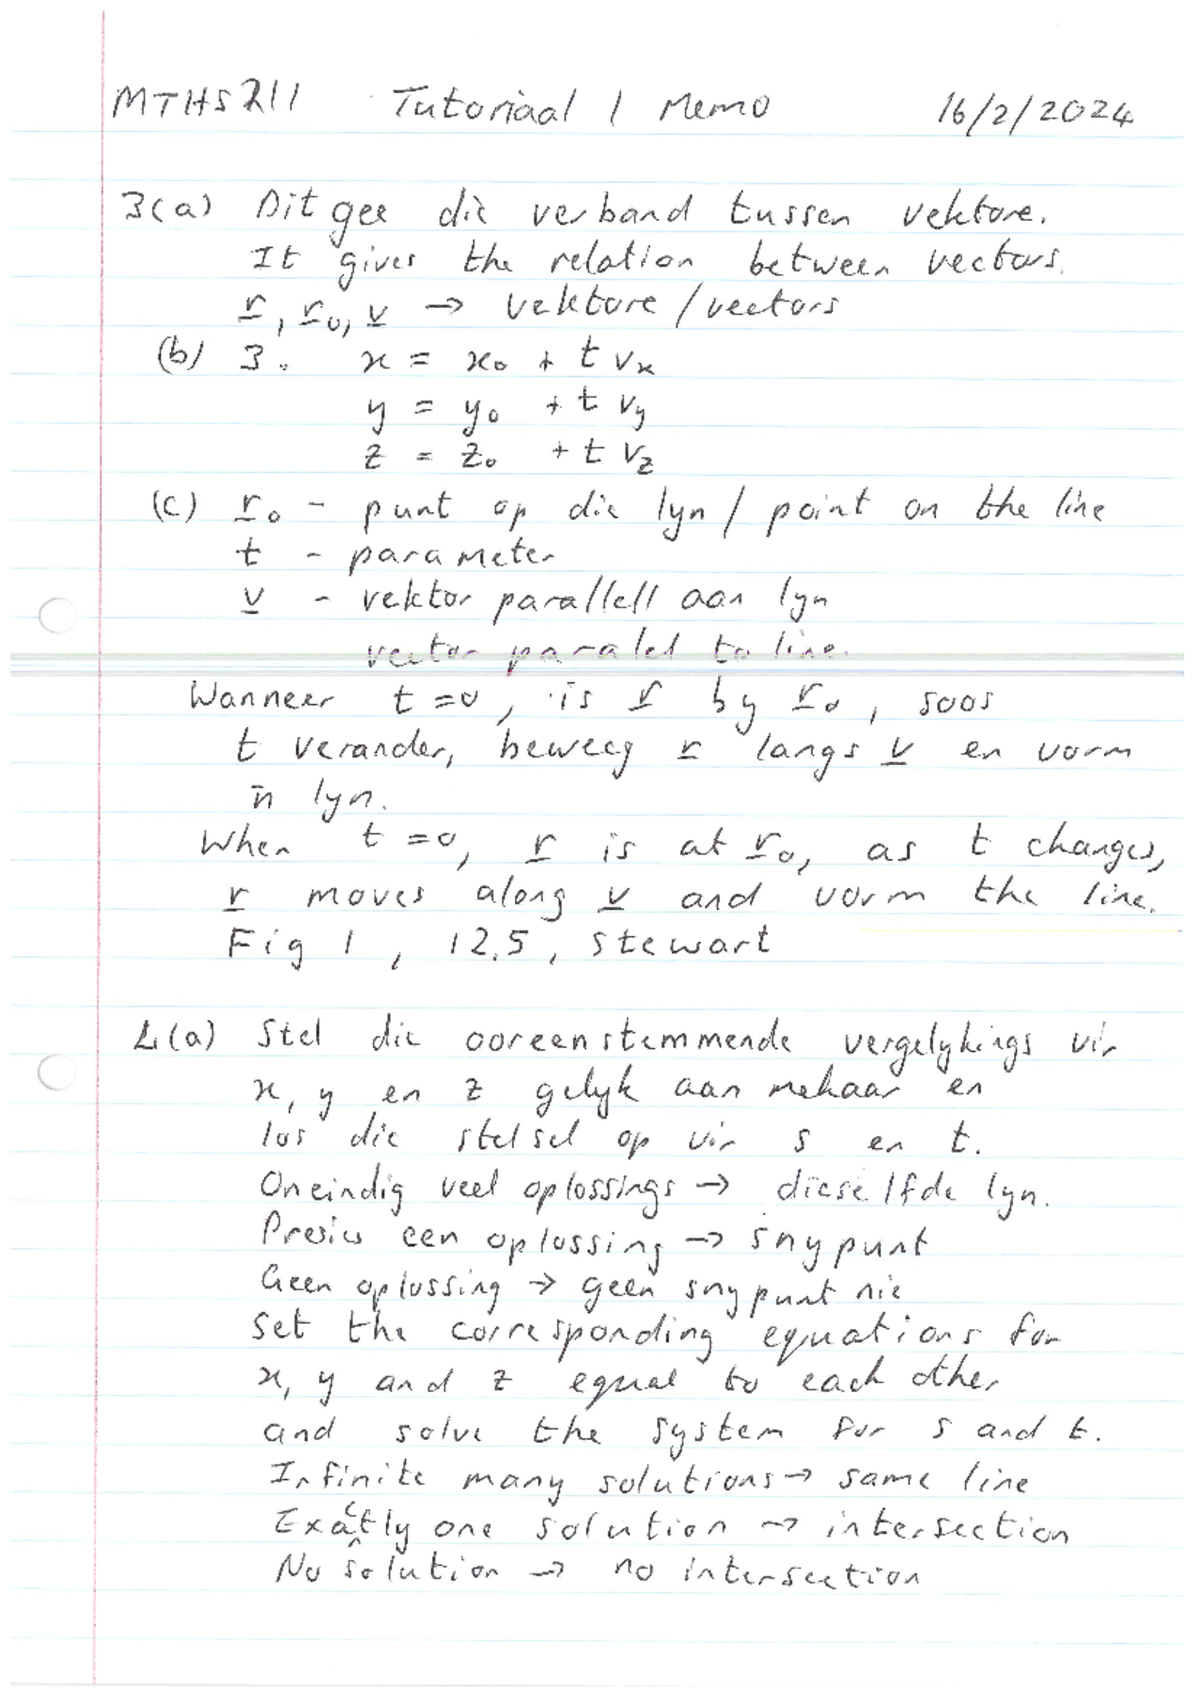 MTHS211 Tutoriaal 1 Memo 16/2/2024
3(a) Dit gee die verband tussen vektore.
It gives the relation between vectors.
r, r₀, v → vektore / vectors
(b) 3. x = x₀ + t vₓ
y = y₀ + t v_y
z = z₀ + t v_z
(c) r₀ - punt op die lyn / point on the line
t - parameter
v - vektor parallell aan lyn
vector paralel to line.
Wanneer t = 0, is r by r₀, soos
t verander, beweeg r langs v en vorm
'n lyn.
When t = 0, r is at r₀, as t changes,
r moves along v and vorm the line.
Fig 1, 12.5, Stewart
4(a) Stel die ooreenstemmende vergelykings vir
x, y en z gelyk aan mekaar en
los die stelsel op vir s en t.
Oneindig veel oplossings → dieselfde lyn.
Presies een oplossing → snypunt
Geen oplossing → geen snypunt nie
Set the corresponding equations for
x, y and z equal to each other
and solve the system for s and t.
Infinite many solutions → same line
Exactly one solution → intersection
No solution → no intersection